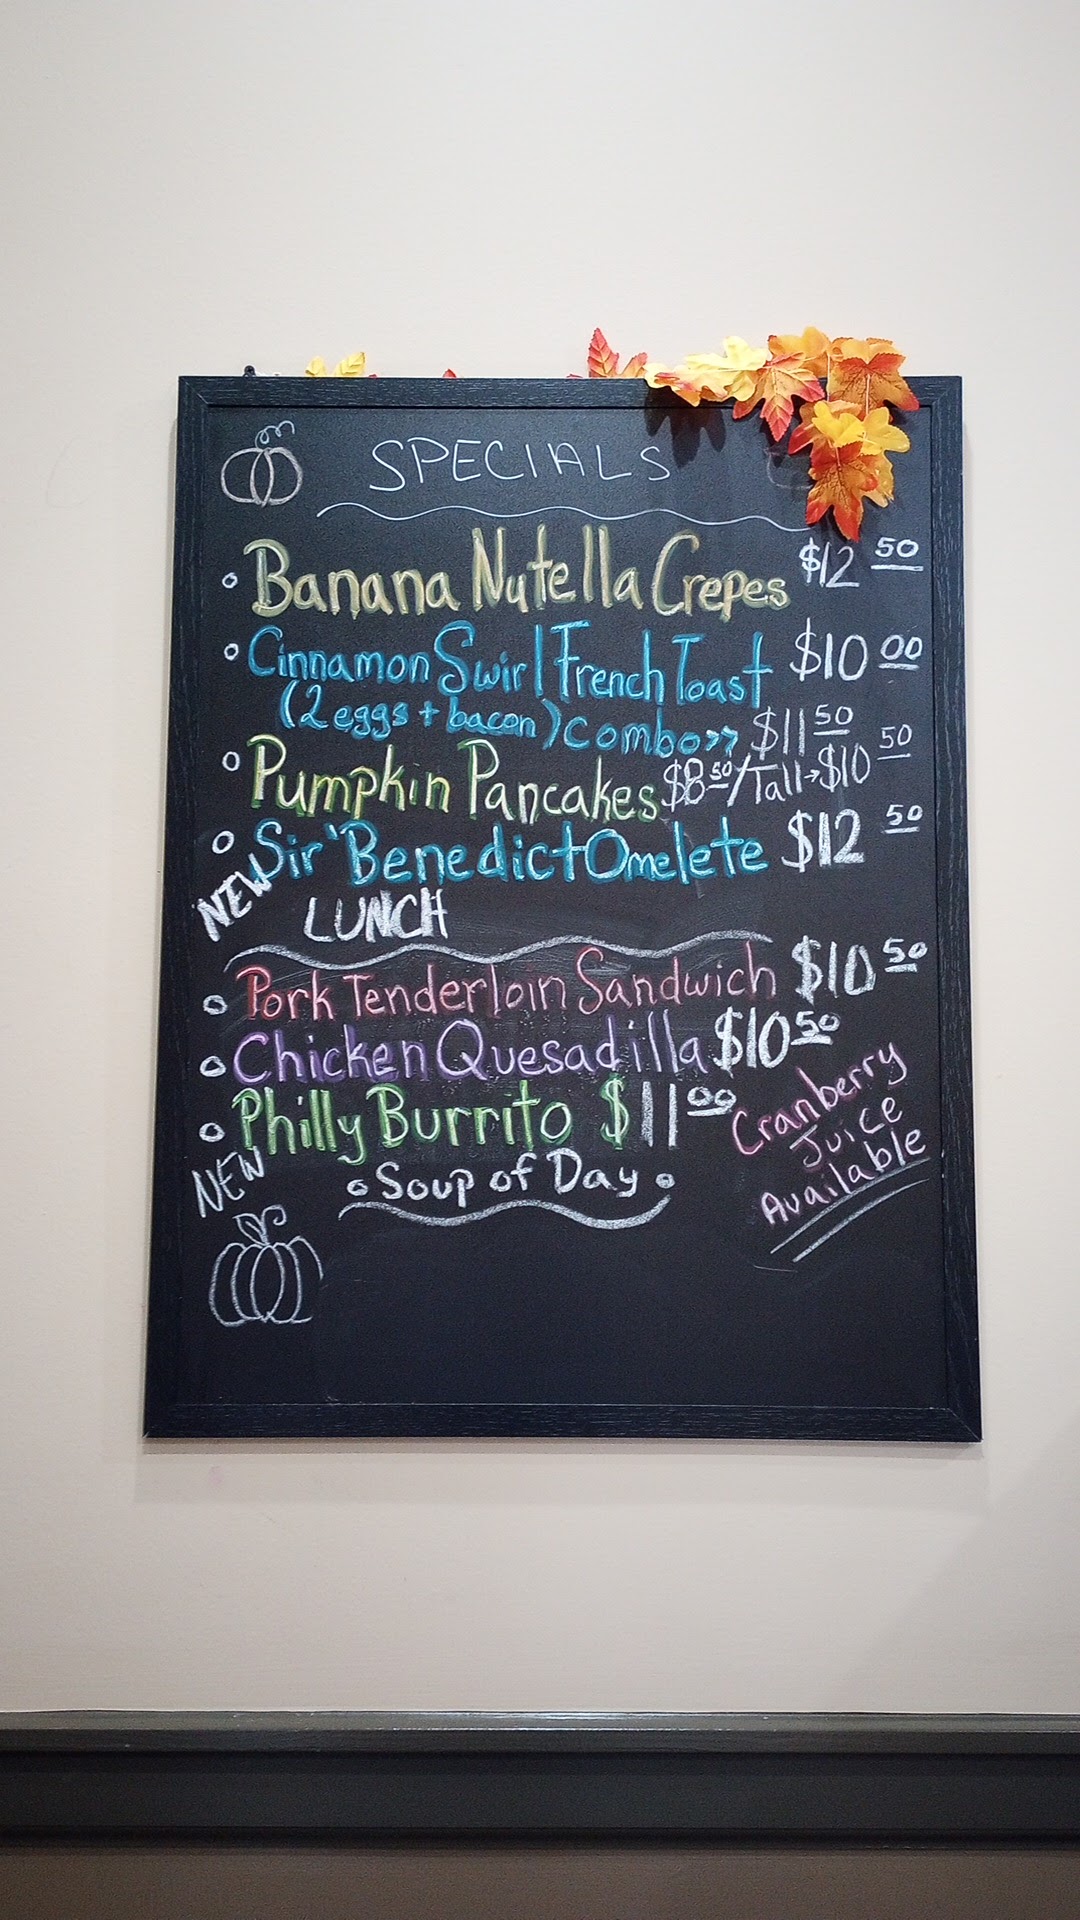 SPECIALS
Banana Nutella Crepes $12 50
Cinnamon Swirl French Toast $10 00
(2 eggs + bacon) combo>> $11 50
Pumpkin Pancakes $8 50/Tall→$10 50
Sir' Benedict Omelete $12 50
NEW
LUNCH
Pork Tenderloin Sandwich $10 50
Chicken Quesadilla $10 50
Philly Burrito $11 00
NEW
Soup of Day
Cranberry
Juice
Available